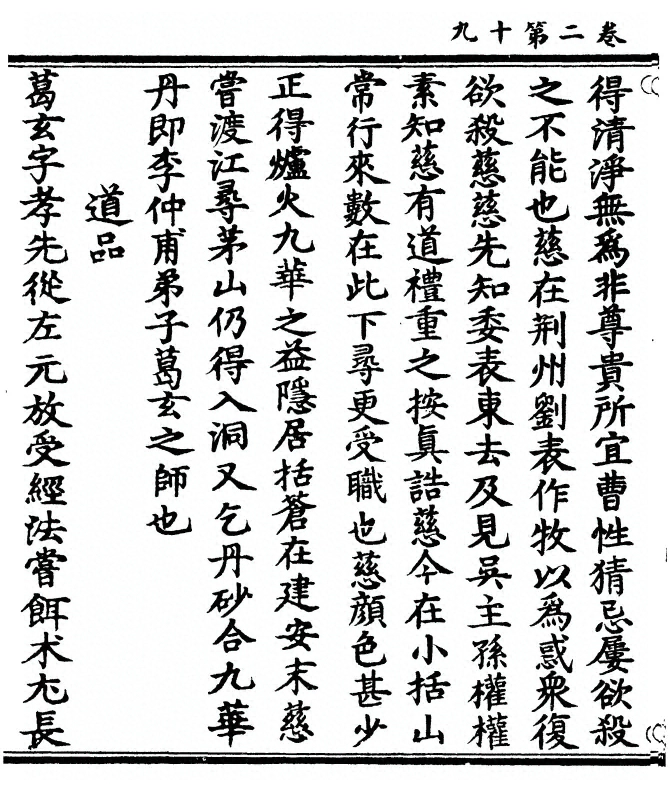 卷二第十九
得清淨無為非尊貴所宜曹性猜忌屢欲殺
之不能也慈在荆州劉表作牧以為惑衆復
欲殺慈慈先知委表東去及見吳主孫權權
素知慈有道禮重之按真誥慈今在小括山
常行來數在此下尋更受職也慈顔色甚少
正得爐火九華之益隱居括蒼在建安末慈
嘗渡江尋茅山仍得入洞又乞丹砂合九華
丹即李仲甫弟子葛玄之師也
道品
葛玄字孝先從左元放受經法嘗餌术尤長